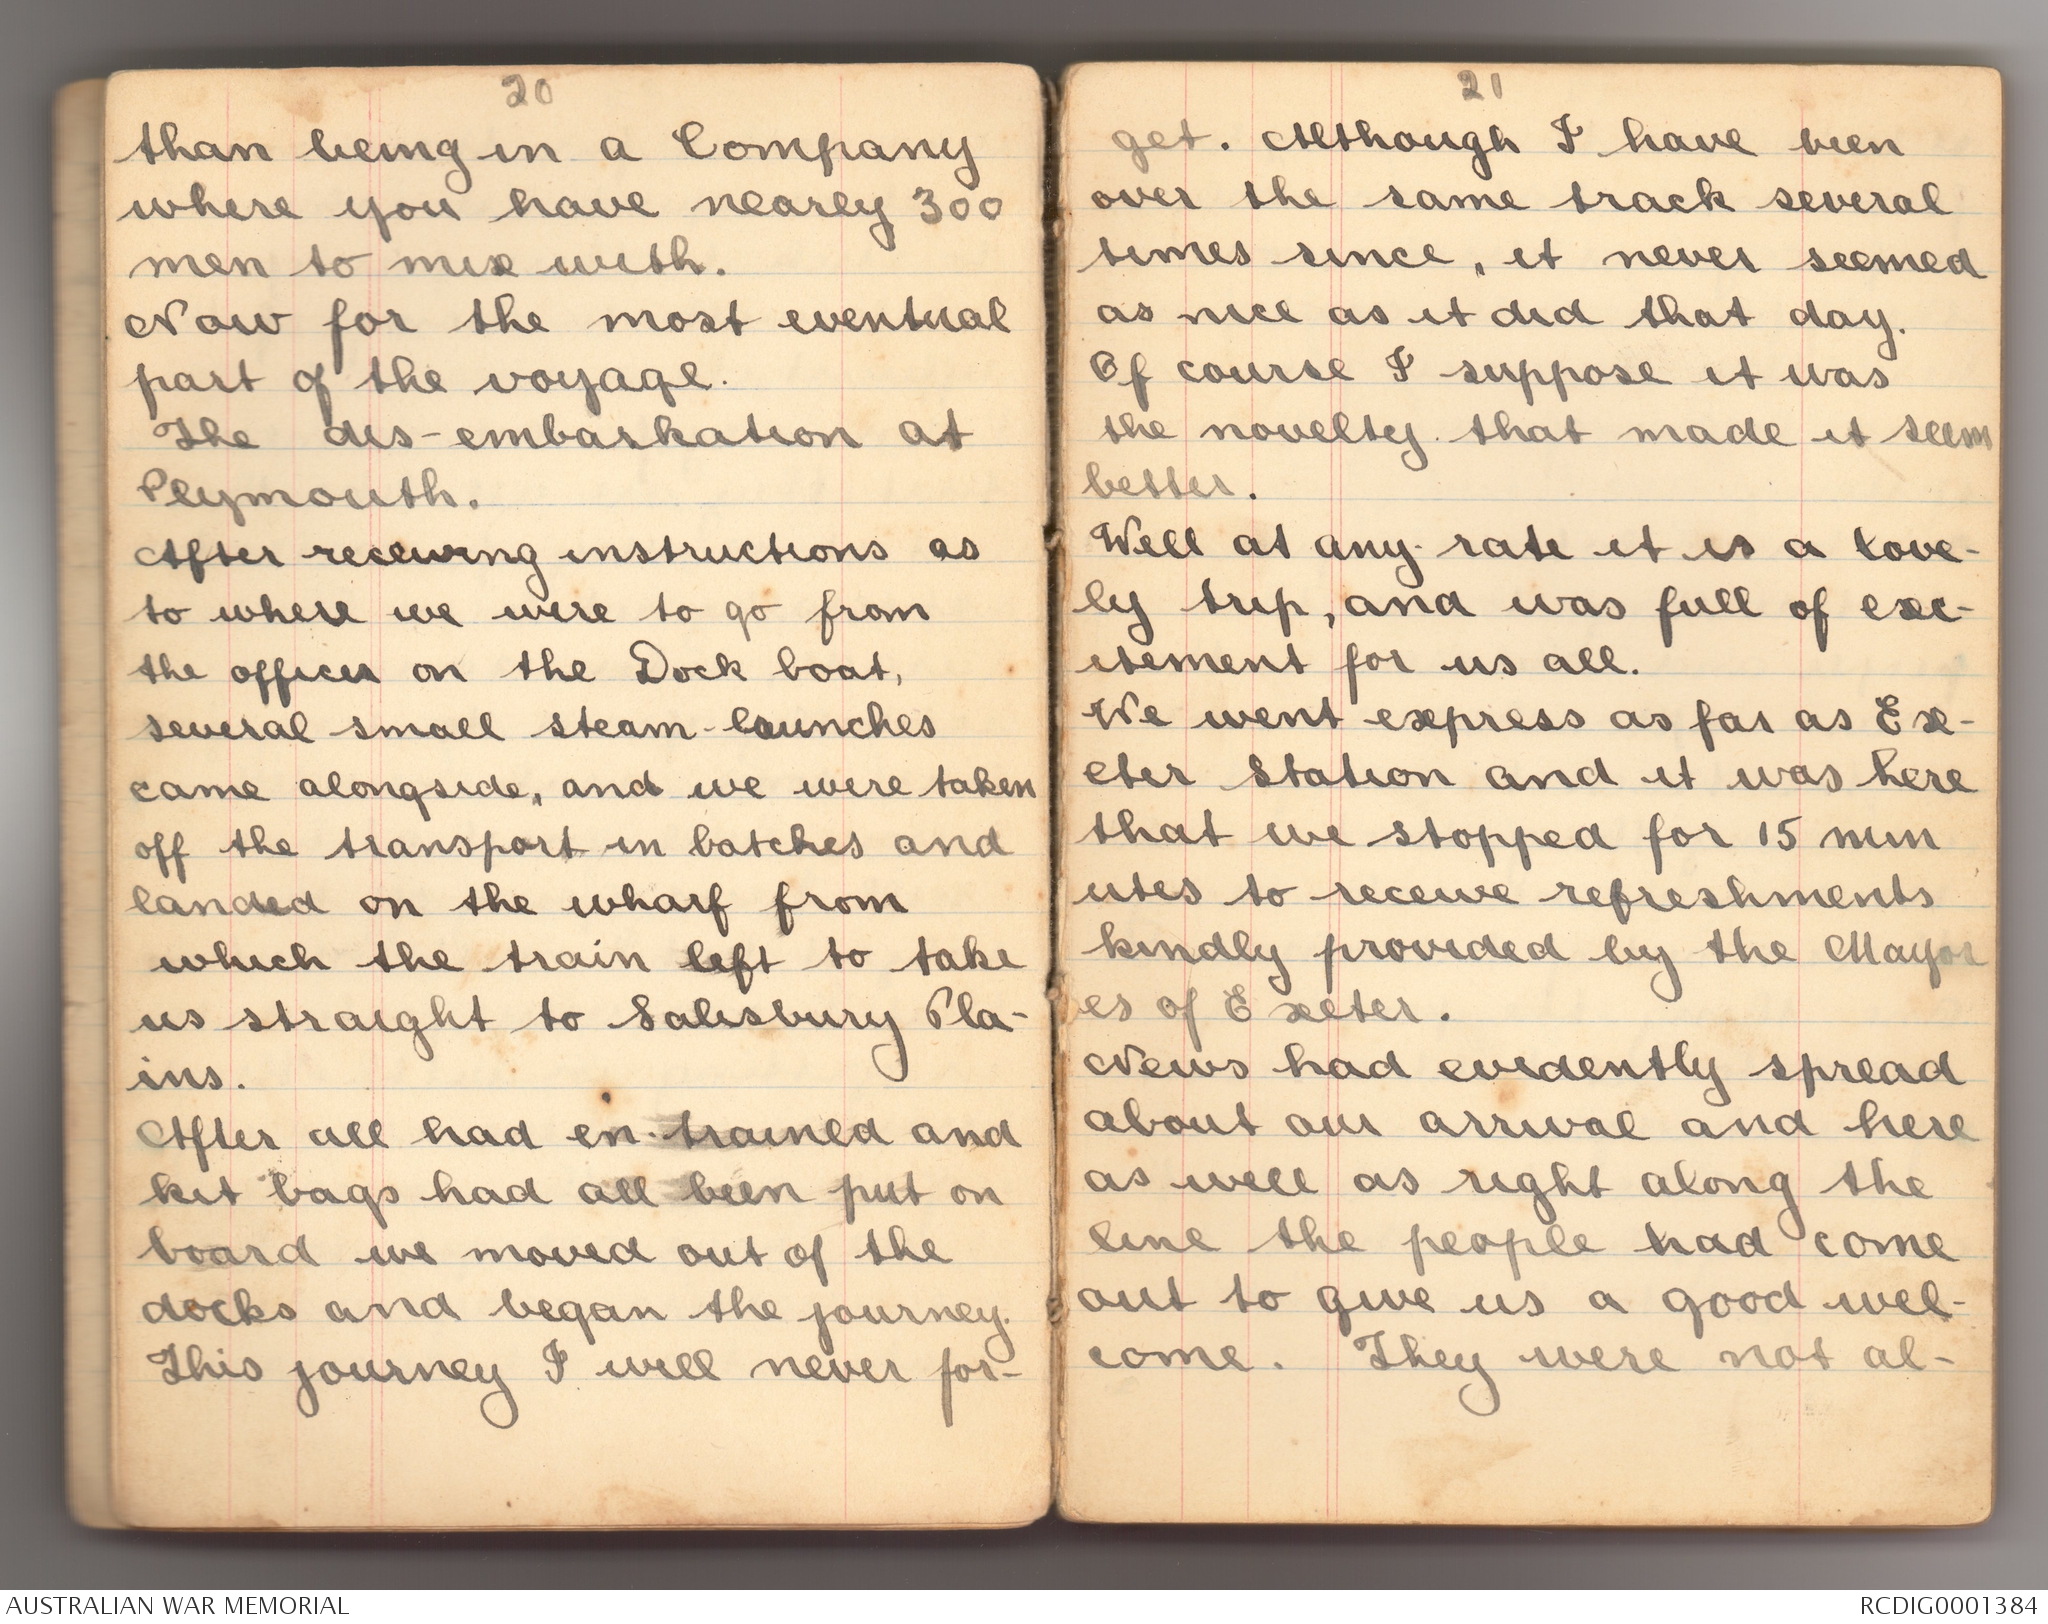 20
than being in a Company
where you have nearly 300
men to mix with.
Now for the most eventual
part of the voyage.
The dis-embarkation at
Plymouth.
After receiving instructions as
to where we were to go from
the officer on the Dock boat,
several small steam-launches
came alongside, and we were taken
off the transport in batches and
landed on the wharf from
which the train left to take
us straight to Salisbury Pla-
ins.
After all had en-trained and
kit bags had all been put on
board we moved out of the
docks and began the journey.
This journey I will never for-
21
get. Although I have been
over the same track several
times since, it never seemed
as nice as it did that day.
Of course I suppose it was
the novelty that made it seem
better.
Well at any rate it is a love-
ly trip, and was full of exc-
itement for us all.
We went express as far as Ex-
eter Station and it was here
that we stopped for 15 min
utes to receive refreshments
kindly provided by the Mayor
es of Exeter.
News had evidently spread
about our arrival and here
as well as right along the
line the people had come
out to give us a good wel-
come. They were not al-
AUSTRALIAN WAR MEMORIAL
RCDIG0001384